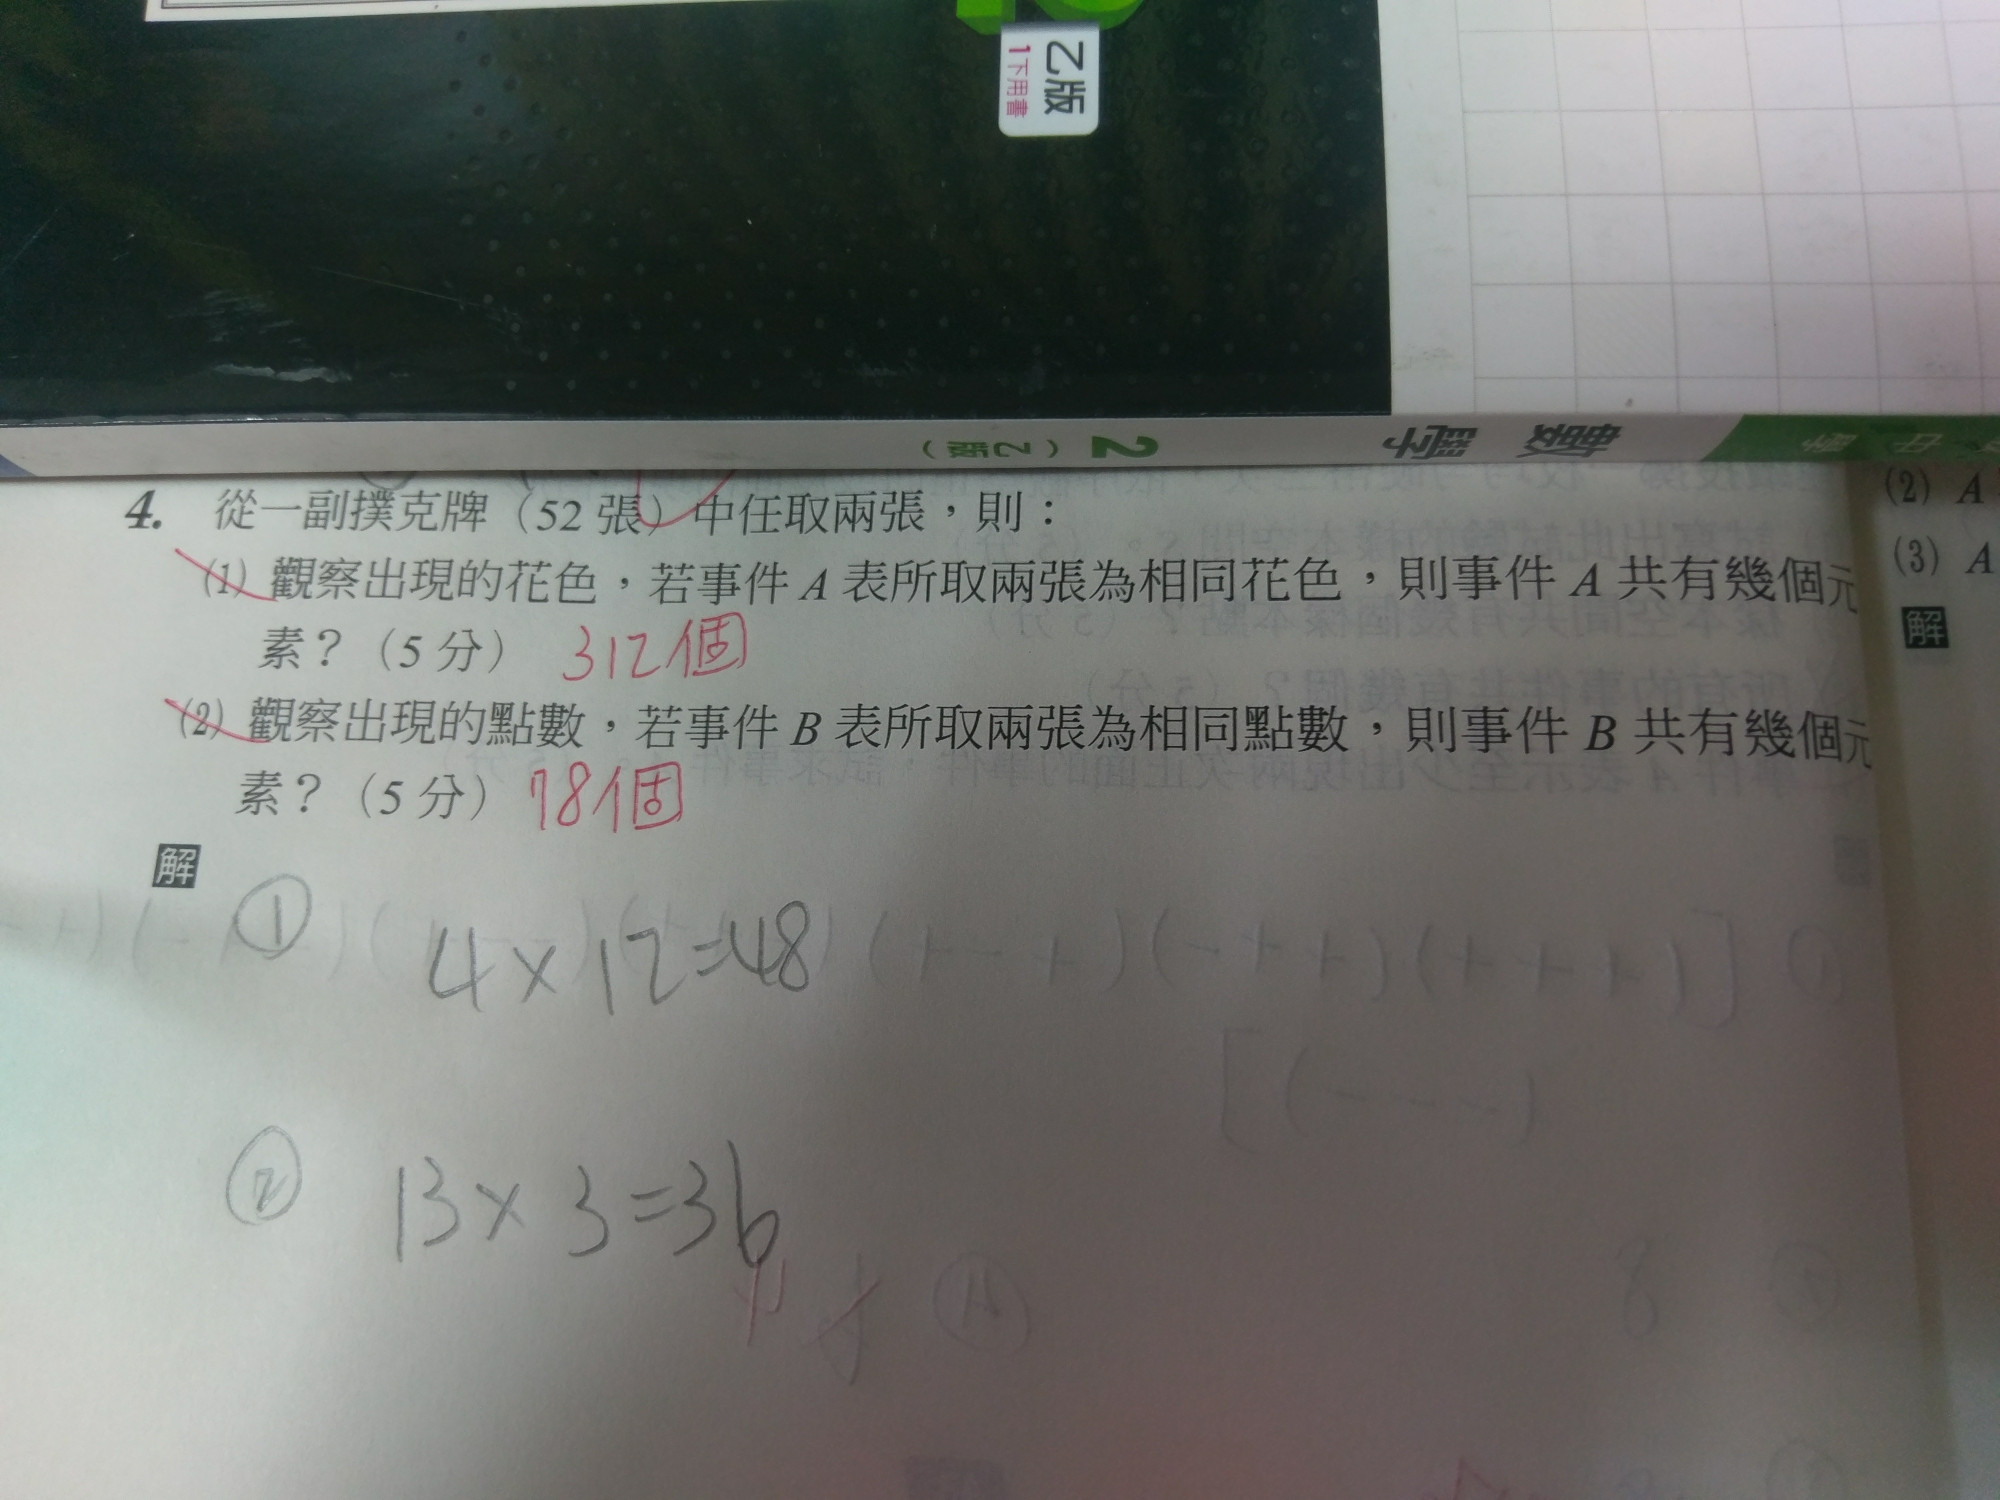 乙版
1下用書
數學 2（乙版）
4. 從一副撲克牌（52 張）中任取兩張，則：
(1) 觀察出現的花色，若事件 A 表所取兩張為相同花色，則事件 A 共有幾個元
素？（5 分） 312個
(2) 觀察出現的點數，若事件 B 表所取兩張為相同點數，則事件 B 共有幾個元
素？（5 分） 78個
解
① 4×12=48
② 13×3=36
(2) A
(3) A
解